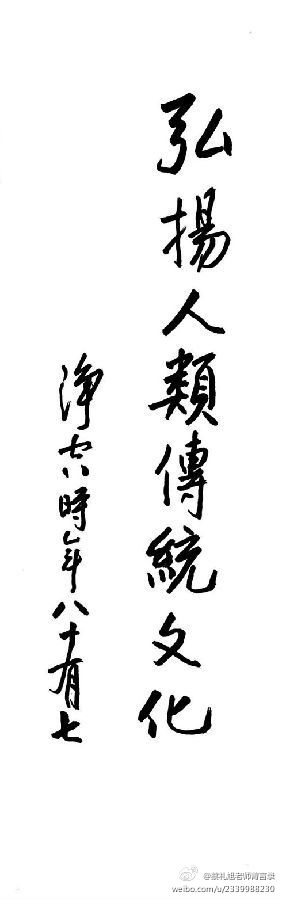 弘揚人類傳統文化
淨空時年八十有七
@蔡礼旭老师菁言录
weibo.com/u/2339988230